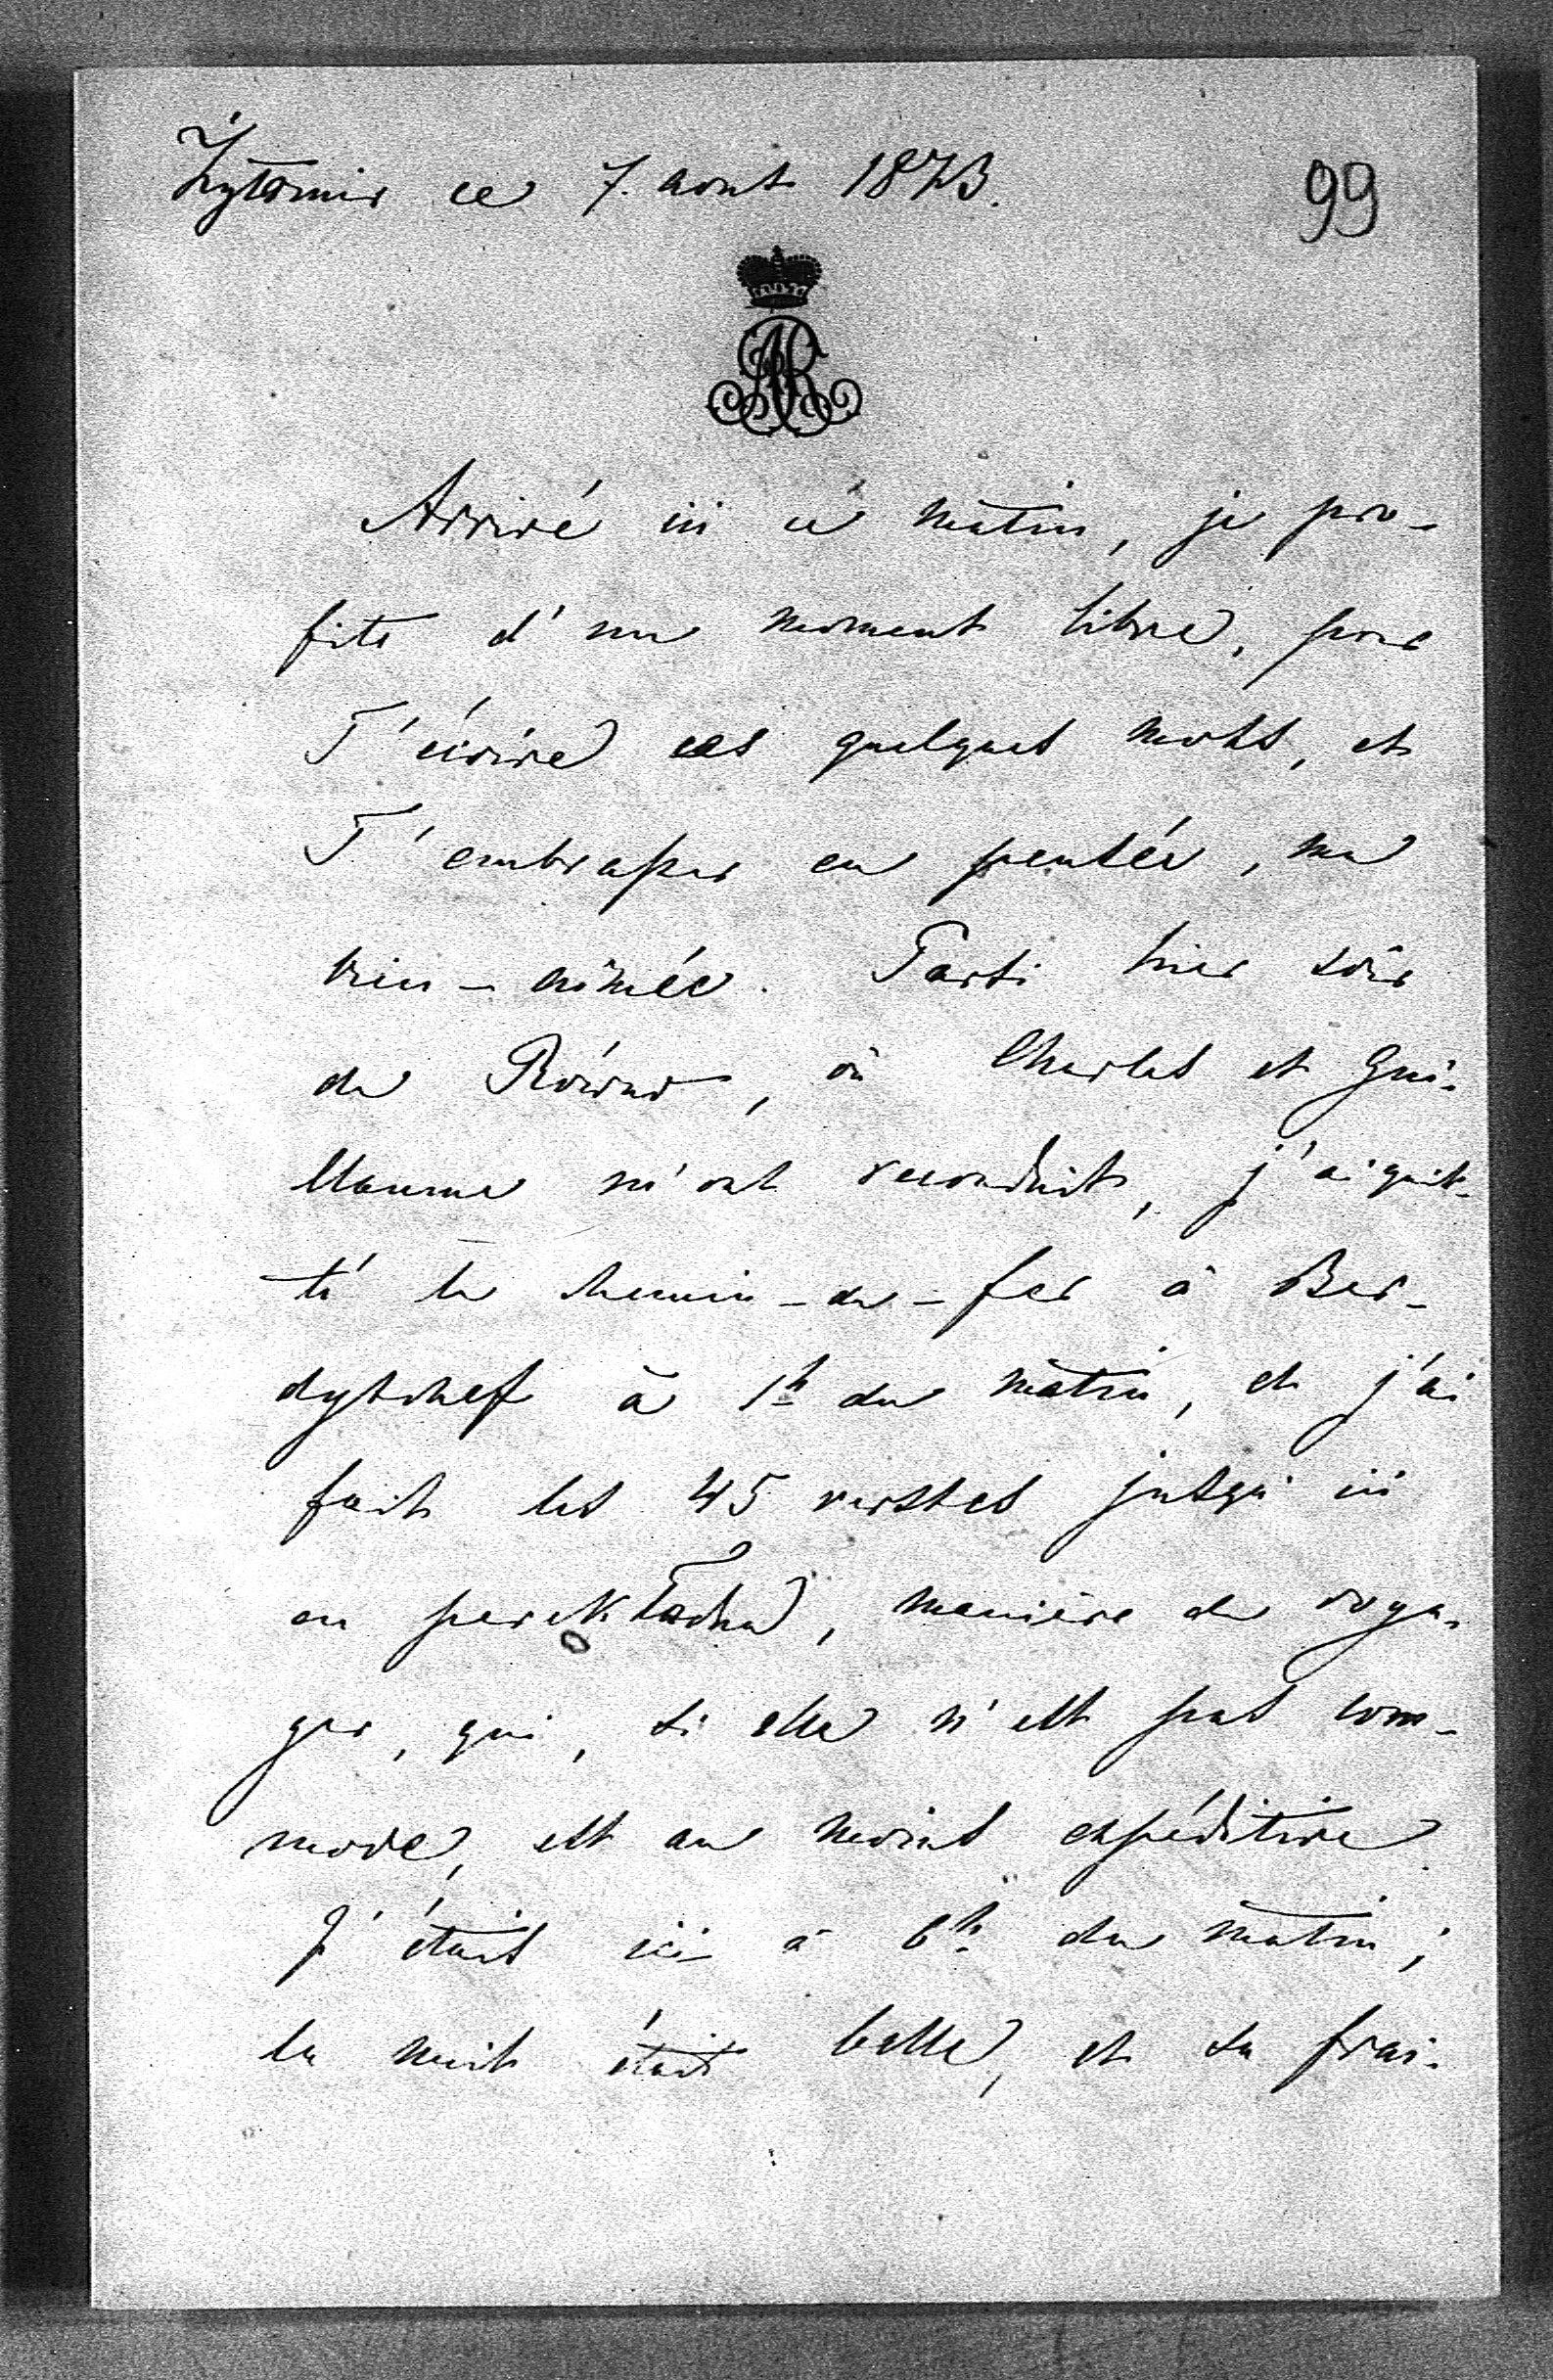 Żytomir ce 7. aout 1873.
99
AR
Arrivé ici ce matin, je pro-
fite d'un moment libre, pour
T'écrire ces quelques mots, et
T'embrasser en pensée, ma
bien-aimée. Parti hier soir
de Równo, où Charles et Gui-
llaume m'ont reconduit, j'ai quit-
té le chemin-de-fer à Ber-
dytchef à 1h du matin, et j'ai
fait les 45 verstes jusqu'ici
en perekładna, manière de voya-
ger, qui, si elle n'est pas com-
mode, est au moins expéditive.
J'étais ici à 6h du matin;
la nuit était belle, et sa frai-